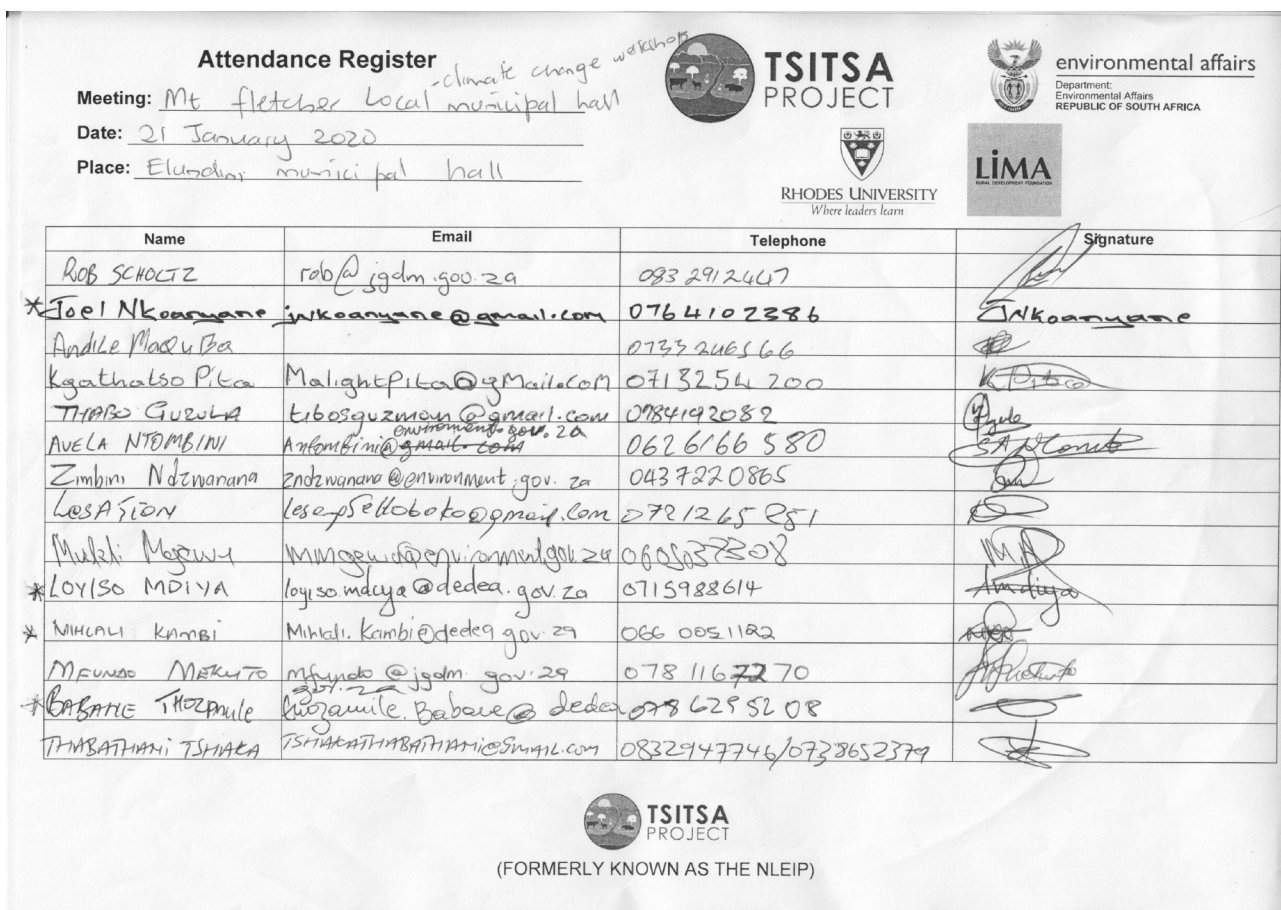 Attendance Register
-climate change workshop
Meeting: Mt fletcher Local municipal hall
Date: 21 January 2020
Place: Elundini municipal hall
TSITSA
PROJECT
environmental affairs
Department:
Environmental Affairs
REPUBLIC OF SOUTH AFRICA
RHODES UNIVERSITY
Where leaders learn
LiMA
RURAL DEVELOPMENT FOUNDATION
Name Email Telephone Signature
ROB SCHOLTZ rob@jgdm.gov.za 0832912447
* Joel Nkoanyane jnkoanyane@gmail.com 0764102386 JNkoanyane
Andile Maquba 0733246566
Kgathatso Pita MalightPita@gMail.com 0713254 200 K Pita
THABO GUZULA tibosguzman@gmail.com 0784192082
environment.gov.za
AVELA NTOMBINI Antombini@gmail.com 0626166 580
Zimbini Ndzwanana zndzwanana@environment.gov.za 0437220865
0721265851
0605037308
* LOYISO MDIYA loyiso.mdiya@dedea.gov.za 0715988614
* MIHLALI KAMBI Mihlali.Kambi@dedea.gov.za 066 0051182
MFUNDO MEKUTO mfundo@jgdm.gov.za 078 1167270
gov.za
* BABANE Babane@dedea 078 6295208
THABATHANI TSHAKA TSHAKATHABATHANI@GMAIL.com 0832947746/0738652379
TSITSA
PROJECT
(FORMERLY KNOWN AS THE NLEIP)